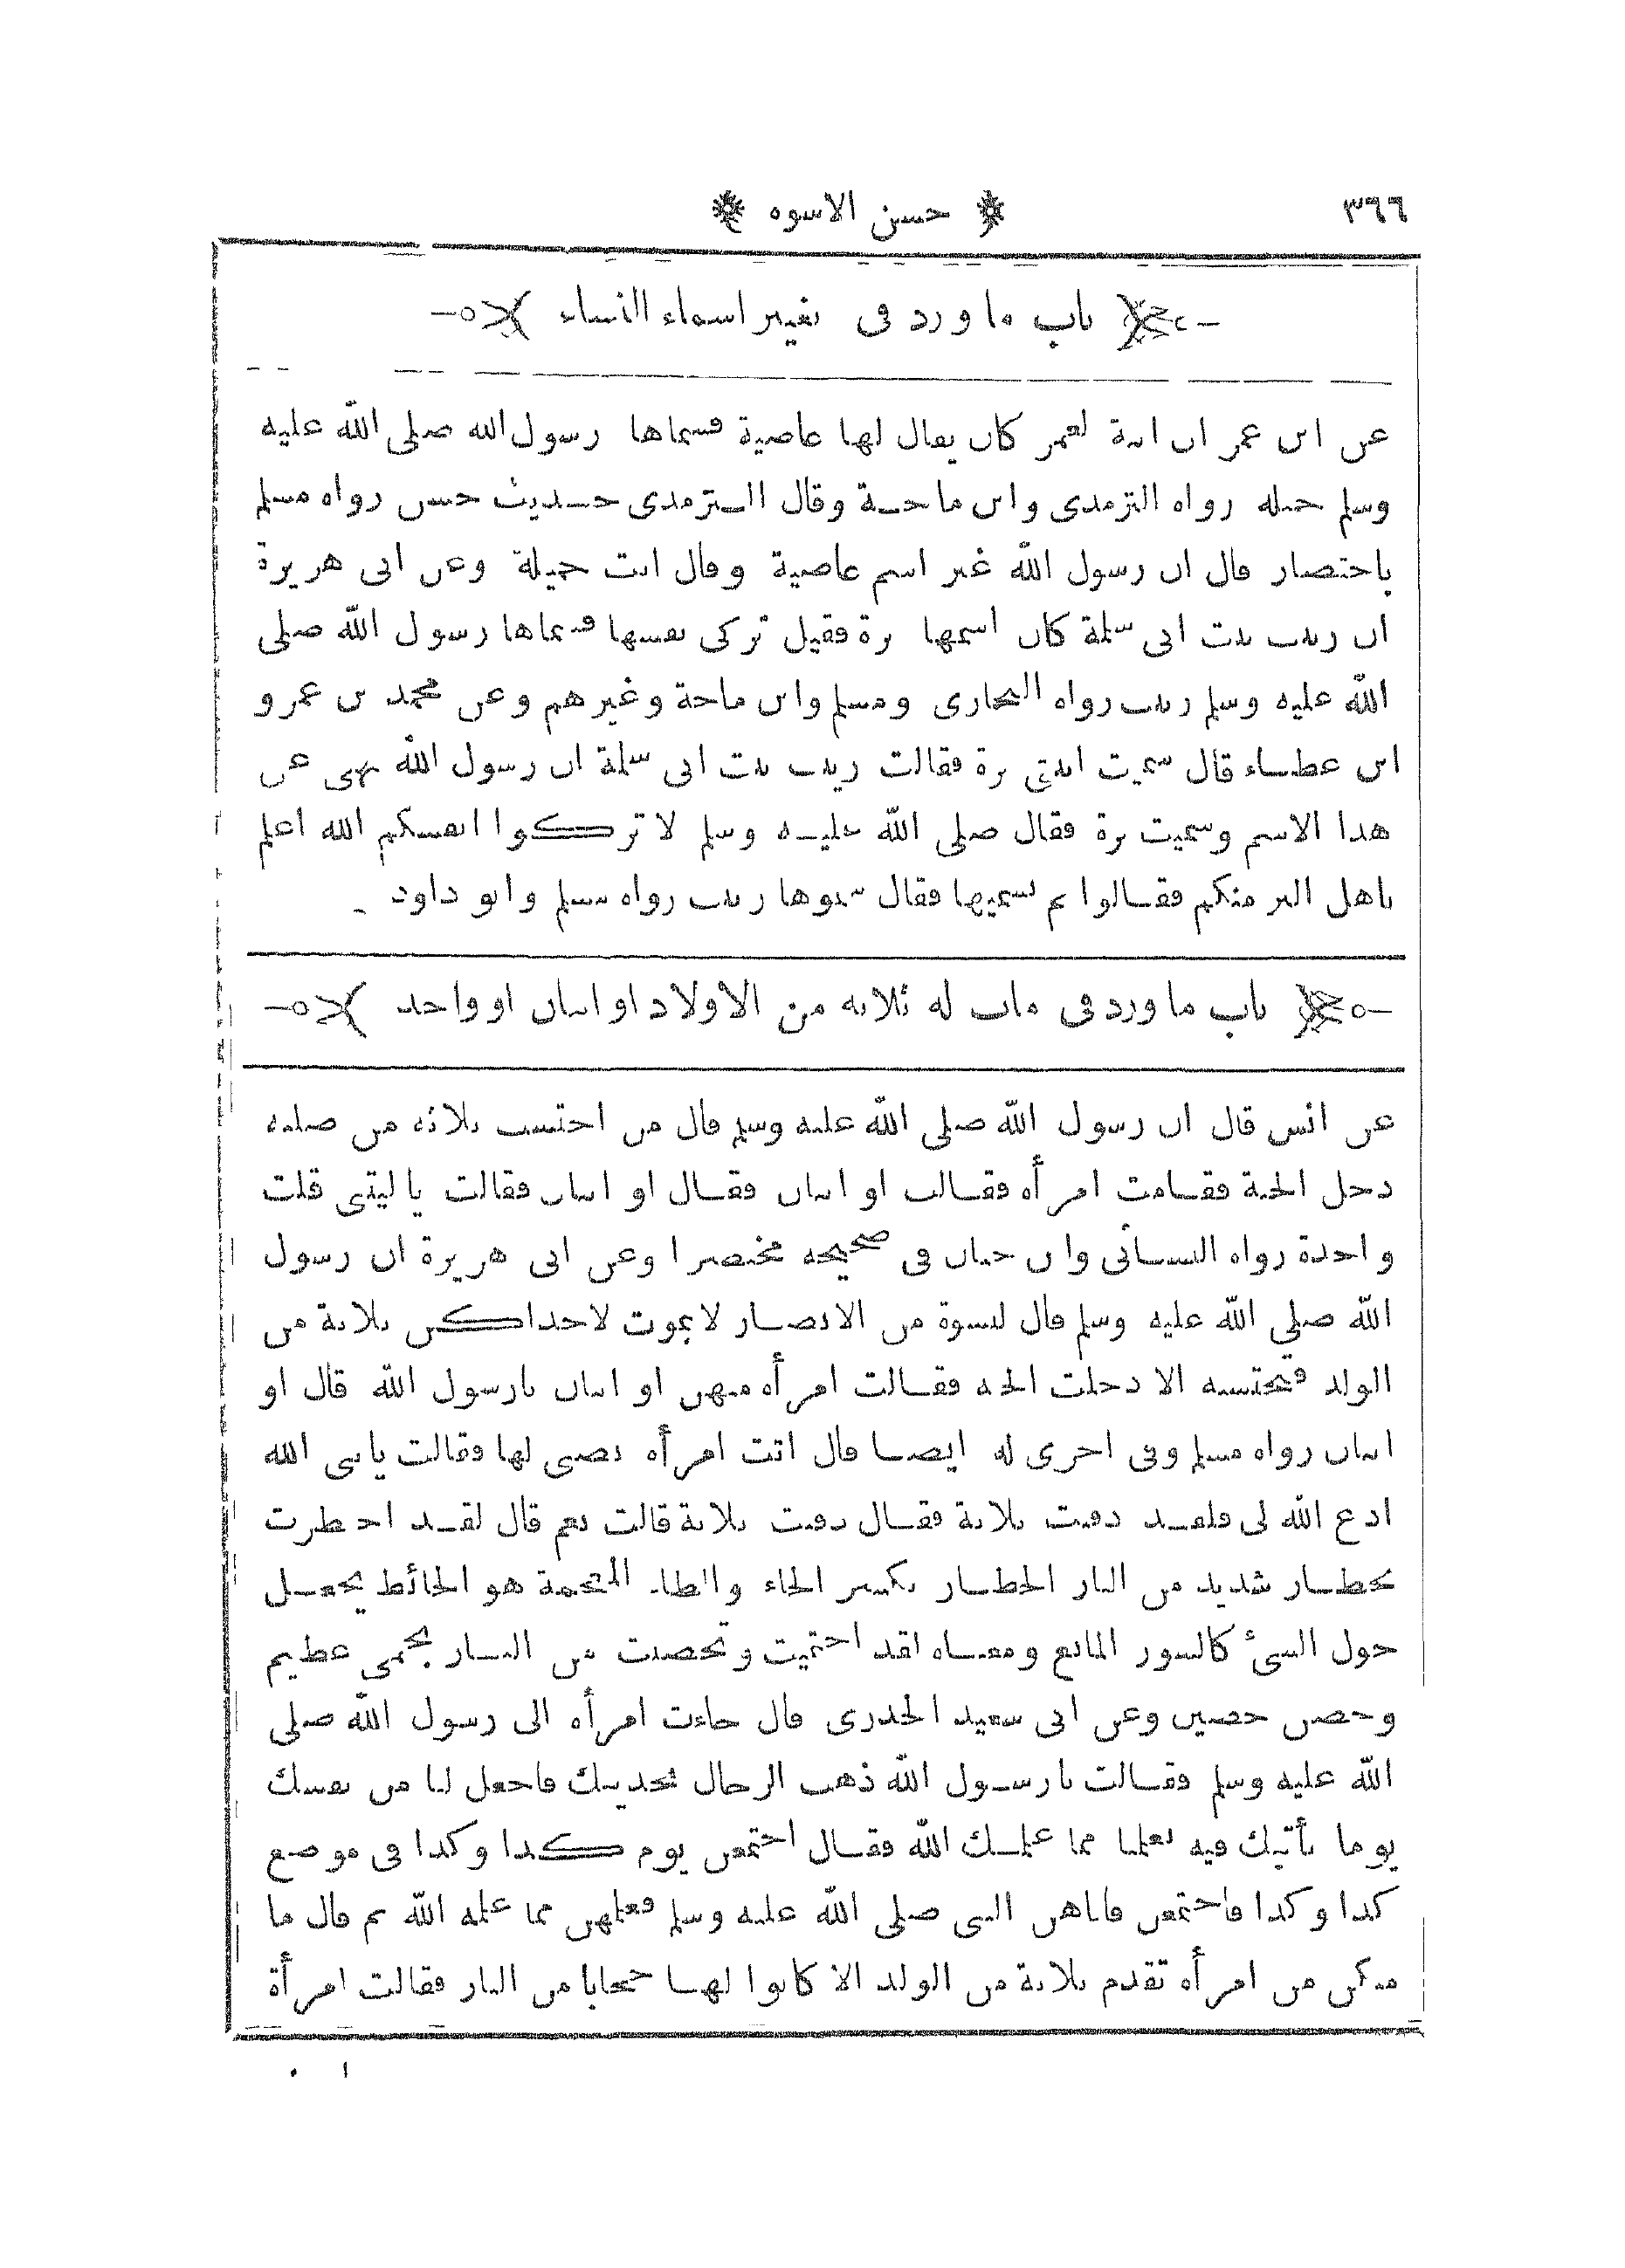 ٣٦٦
حسن الاسوه
باب ما ورد في تغيير اسماء النساء
عن ابن عمر ان ابنة لعمر كان يقال لها عاصية فسماها رسول الله صلى الله عليه
وسلم جميله رواه الترمذى وابن ماجة وقال الترمذى حديث حسن رواه مسلم
باختصار قال ان رسول الله غير اسم عاصية وقال انت جميلة وعن ابى هريرة
ان زينب بنت ابى سلمة كان اسمها برة فقيل تزكى نفسها فسماها رسول الله صلى
الله عليه وسلم زينب رواه البخارى ومسلم وابن ماجة وغيرهم وعن محمد بن عمرو
ابن عطاء قال سميت ابنتى برة فقالت زينب بنت ابى سلمة ان رسول الله نهى عن
هذا الاسم وسميت برة فقال صلى الله عليه وسلم لا تزكوا انفسكم الله اعلم
باهل البر منكم فقالوا بم نسميها فقال سموها زينب رواه مسلم وابو داود
باب ما ورد فى مات له ثلاثه من الاولاد او اثنان او واحد
عن انس قال ان رسول الله صلى الله عليه وسلم قال من احتسب ثلاثه من صلبه
دخل الجنة فقامت امرأه فقالت او اثنان فقال او اثنان فقالت يا ليتنى قلت
واحدة رواه النسائى وابن حبان فى صحيحه مختصرا وعن ابى هريرة ان رسول
الله صلى الله عليه وسلم قال لنسوة من الانصار لا يموت لاحداكن ثلاثة من
الولد فتحتسبه الا دخلت الجنه فقالت امرأه منهن او اثنان يا رسول الله قال او
اثنان رواه مسلم وفى اخرى له ايضا قال اتت امرأه بصبى لها فقالت يا نبى الله
ادع الله لى فلقد دفنت ثلاثة فقال دفنت ثلاثة قالت نعم قال لقد احتظرت
بحظار شديد من النار الحظار بكسر الحاء والظاء المعجمة هو الحائط يجعل
حول الشئ كالسور المانع ومعناه لقد احتميت وتحصنت من النار بحمى عظيم
وحصن حصين وعن ابى سعيد الخدرى قال جاءت امرأه الى رسول الله صلى
الله عليه وسلم فقالت يا رسول الله ذهب الرجال بحديثك فاجعل لنا من نفسك
يوما نأتيك فيه تعلمنا مما علمك الله فقال اجتمعن يوم كذا وكذا فى موضع
كذا وكذا فاجتمعن فاتاهن النبى صلى الله عليه وسلم فعلمهن مما علمه الله ثم قال ما
منكن من امرأه تقدم ثلاثة من الولد الا كانوا لها حجابا من النار فقالت امرأة